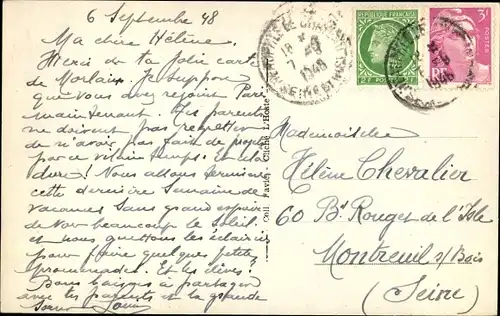 6 Septembre 48
Ma chère Hélène,
Merci de ta jolie carte
de Morlaix. Je suppose
que vous avez rejoint Paris
maintenant. Tes parents
ne doivent pas regretter
de n'avoir pas fait de projets
par ce vilain temps. Et cela
dure! Nous allons terminer
cette dernière semaine de
vacances sans grand espoir
de voir beaucoup le soleil
et nous guettons les éclaircies
pour faire quelques petites
promenades. Et les élèves!
Bons baisers à partager
avec tes parents et la grande
soeur
Coll. Pavie. - Cliché L'Hoste
RÉPUBLIQUE FRANÇAISE
POSTES
3F
1948
Mademoiselle
Hélène Chevalier
60 Bd Rouget de l'Isle
Montreuil s/Bois
(Seine)